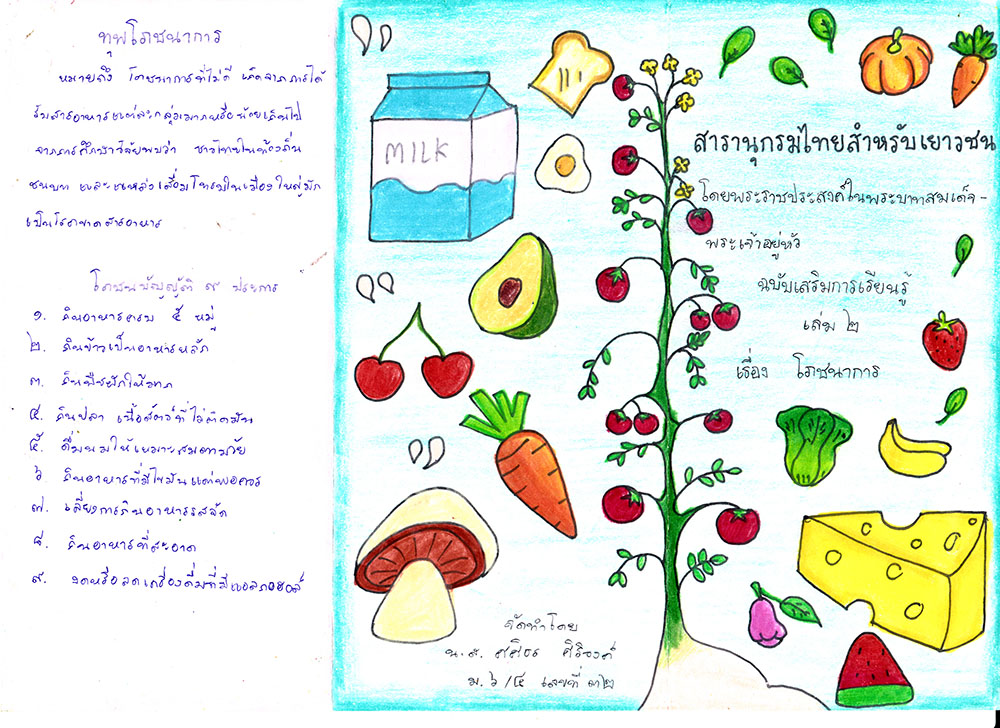 ทุพโภชนาการ
หมายถึง โภชนาการที่ไม่ดี เกิดจากการได้
รับสารอาหารแต่ละกลุ่มมากหรือน้อยเกินไป
จากการศึกษาวิจัยพบว่า ชาวไทยในท้องถิ่น
ชนบท และแหล่งเสื่อมโทรมในเมืองใหญ่มัก
เป็นโรคขาดสารอาหาร
โภชนบัญญัติ ๙ ประการ
๑. กินอาหารครบ ๕ หมู่
๒. กินข้าวเป็นอาหารหลัก
๓. กินพืชผักให้มาก
๔. กินปลา เนื้อสัตว์ที่ไม่ติดมัน
๕. ดื่มนมให้เหมาะสมตามวัย
๖. กินอาหารที่มีไขมันแต่พอควร
๗. เลี่ยงการกินอาหารรสจัด
๘. กินอาหารที่สะอาด
๙. งดหรือลดเครื่องดื่มที่มีแอลกอฮอล์
MILK
สารานุกรมไทยสำหรับเยาวชน
โดยพระราชประสงค์ในพระบาทสมเด็จ-
พระเจ้าอยู่หัว
ฉบับเสริมการเรียนรู้
เล่ม ๒
เรื่อง โภชนาการ
จัดทำโดย
น.ส. ศศิธร ศิริวงศ์
ม.๖/๔ เลขที่ ๓๒